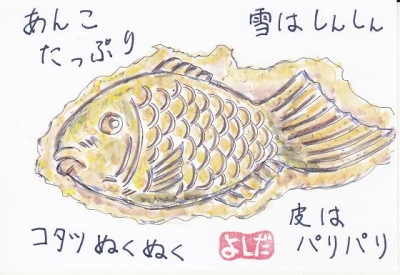 あんこ
たっぷり
雪はしんしん
コタツぬくぬく
よしだ
皮は
パリパリ